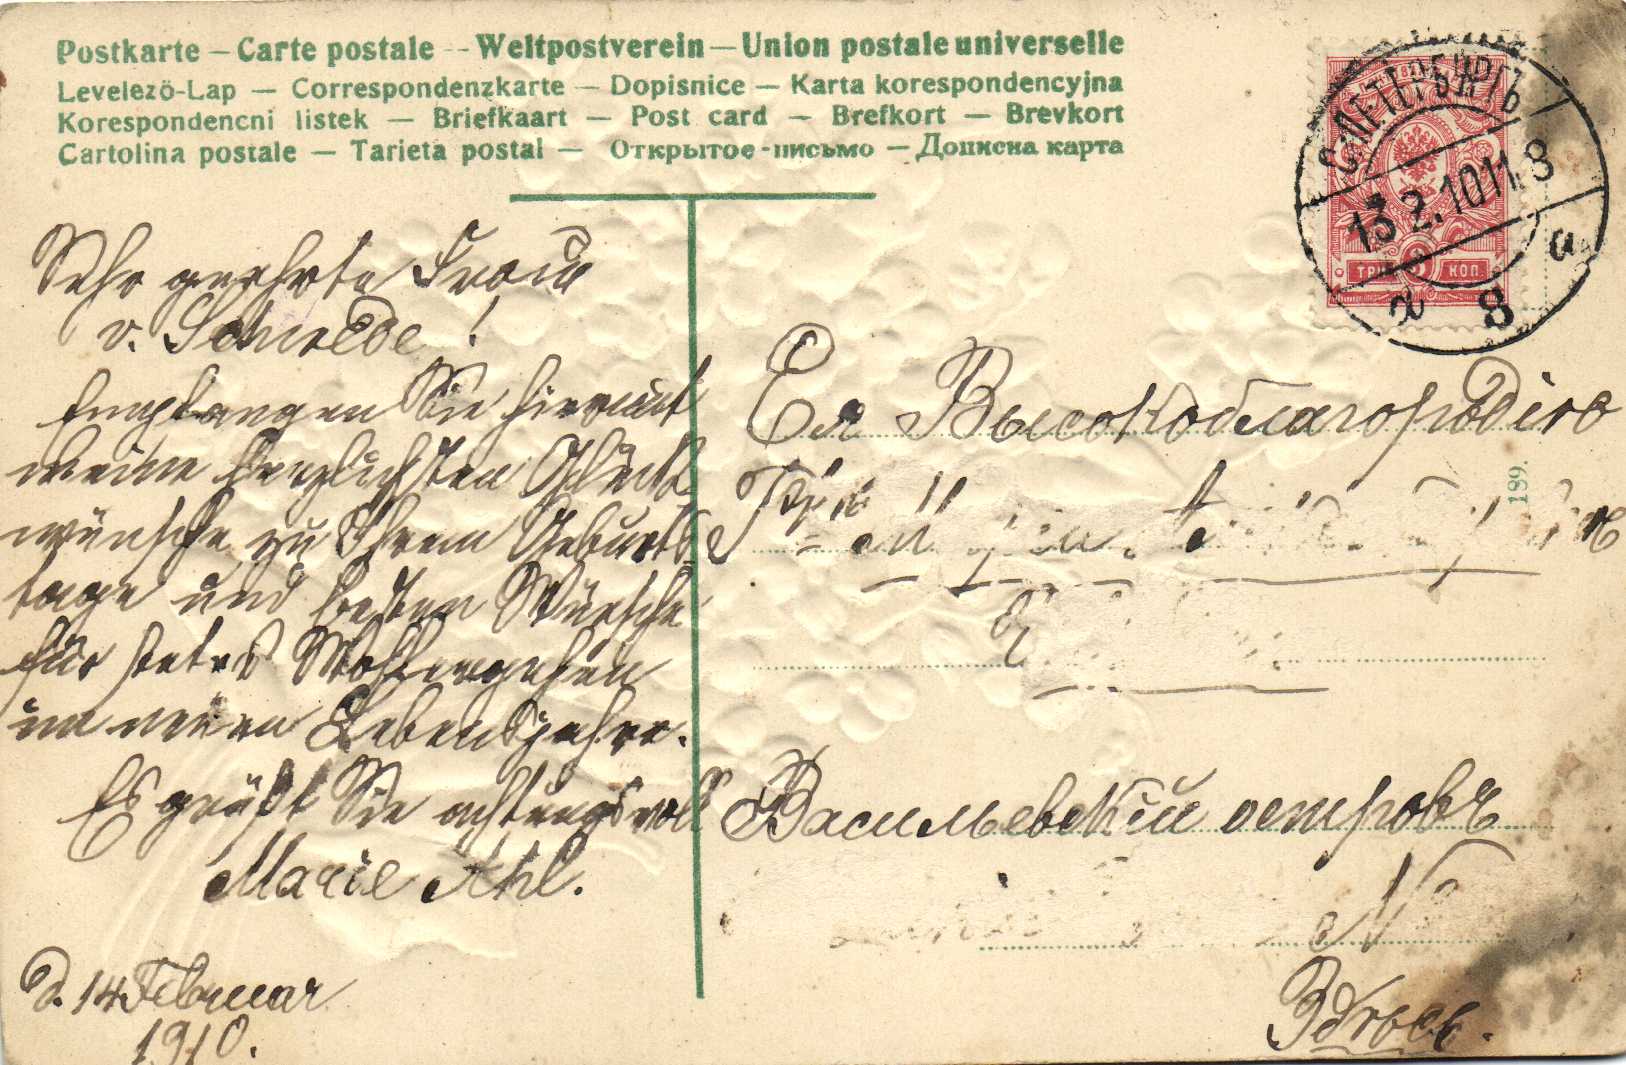 Postkarte – Carte postale – Weltpostverein – Union postale universelle
Levelezö-Lap — Correspondenzkarte — Dopisnice — Karta korespondencyjna
Korespondencni listek — Briefkaart — Post card — Brefkort — Brevkort
Cartolina postale — Tarjeta postal — Открытое-письмо — Дописна карта
С.ПЕТЕРБУРГЪ
13.2.10 11 8
8 а
ТРИ 3 КОП.
Sehr geehrte Frau
v. Schwede!
Empfangen Sie hiermit
meine herzlichsten Glück
wünsche zu Ihrem Geburts
tage und besten Wünsche
für stetes Wohlergehen
im neuen Lebensjahre.
Es grüßt Sie achtungsvoll
Marie Ahl.
d. 14 Februar
1910.
Ея Высокоблагородію
Васильевскій островъ
№
Здѣсь.
189.